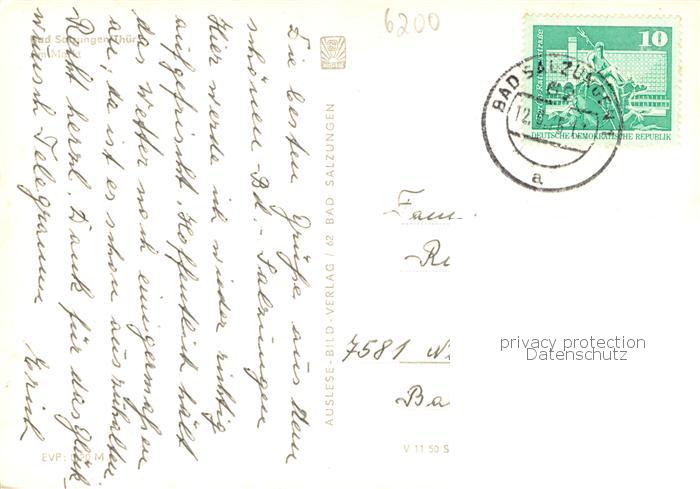 6200
Bad Salzungen Thür.
Am Markt
Die besten Grüße aus dem
schönen Bd.-Salzungen
Hier werde ich wieder richtig
aufgefrischt. Hoffentlich hält
das Wetter noch einigermaßen
aus, da ist es schon auszuhalten.
Recht herzl. Dank für das Glück-
wunsch Telegramm Erich
EVP: 0,20 M
AUSLESE-BILD-VERLAG / 62 BAD SALZUNGEN
V 11 50 S
10
DEUTSCHE DEMOKRATISCHE REPUBLIK
BAD SALZUNGEN 1
12.
a
Fam.
Re
7581
Ba
privacy protection
Datenschutz